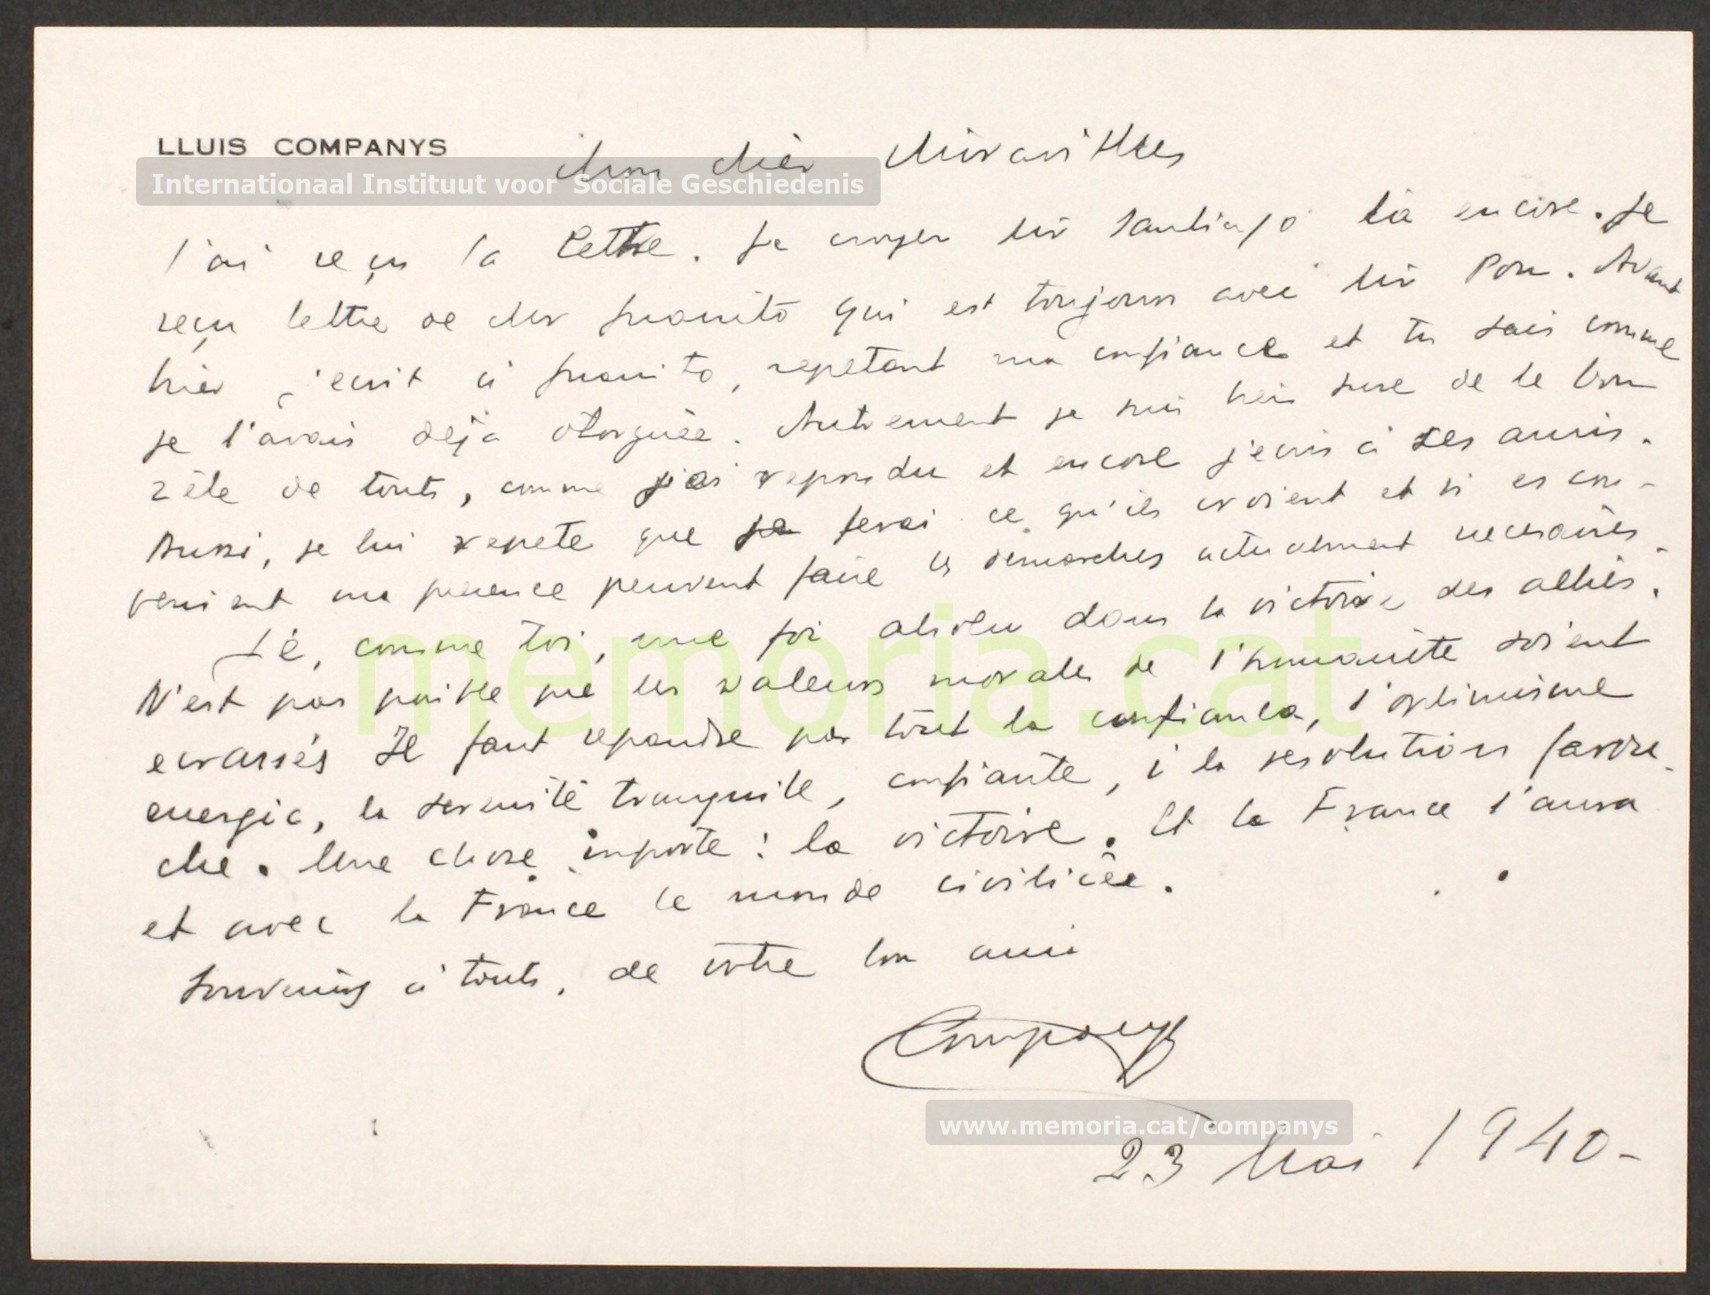 LLUIS COMPANYS
Internationaal Instituut voor Sociale Geschiedenis
Mon chèr Miravitlles
J'ai reçu ta lettre. Je Santiago là encore. Je
reçu lettre de Mr Juanito qui est toujours avec Mr Pou. Avant
hièr j'ecrit à Juanito, repetant ma confiance et tu sais comme
je l'avais dejà otorguèe. Autrement je suis sure de le bon
zèle de touts, comme j'ai repondu et encore j'ecris à ses amis.
Aussi, je lui repete que je ferai ce qu'ils croient et si es con-
venient ma presence peuvent faire les demarches actualment necesaires.
J'é, comme toi, une foi absolu dans la victoire des alliés.
N'est pas posible que les valeurs morales de l'humanité soient
ecrassés Il faut repandre par tout la confianca, l'optimisme
energic, la serenité tranquile, confiante, i la resolution farou-
che. Une chose importe: la victoire. Et la France l'aura
et avec la France le monde civilicée.
Souvenirs à touts, de votre bon ami
Companys
www.memoria.cat/companys
23 Mai 1940-
memoria.cat